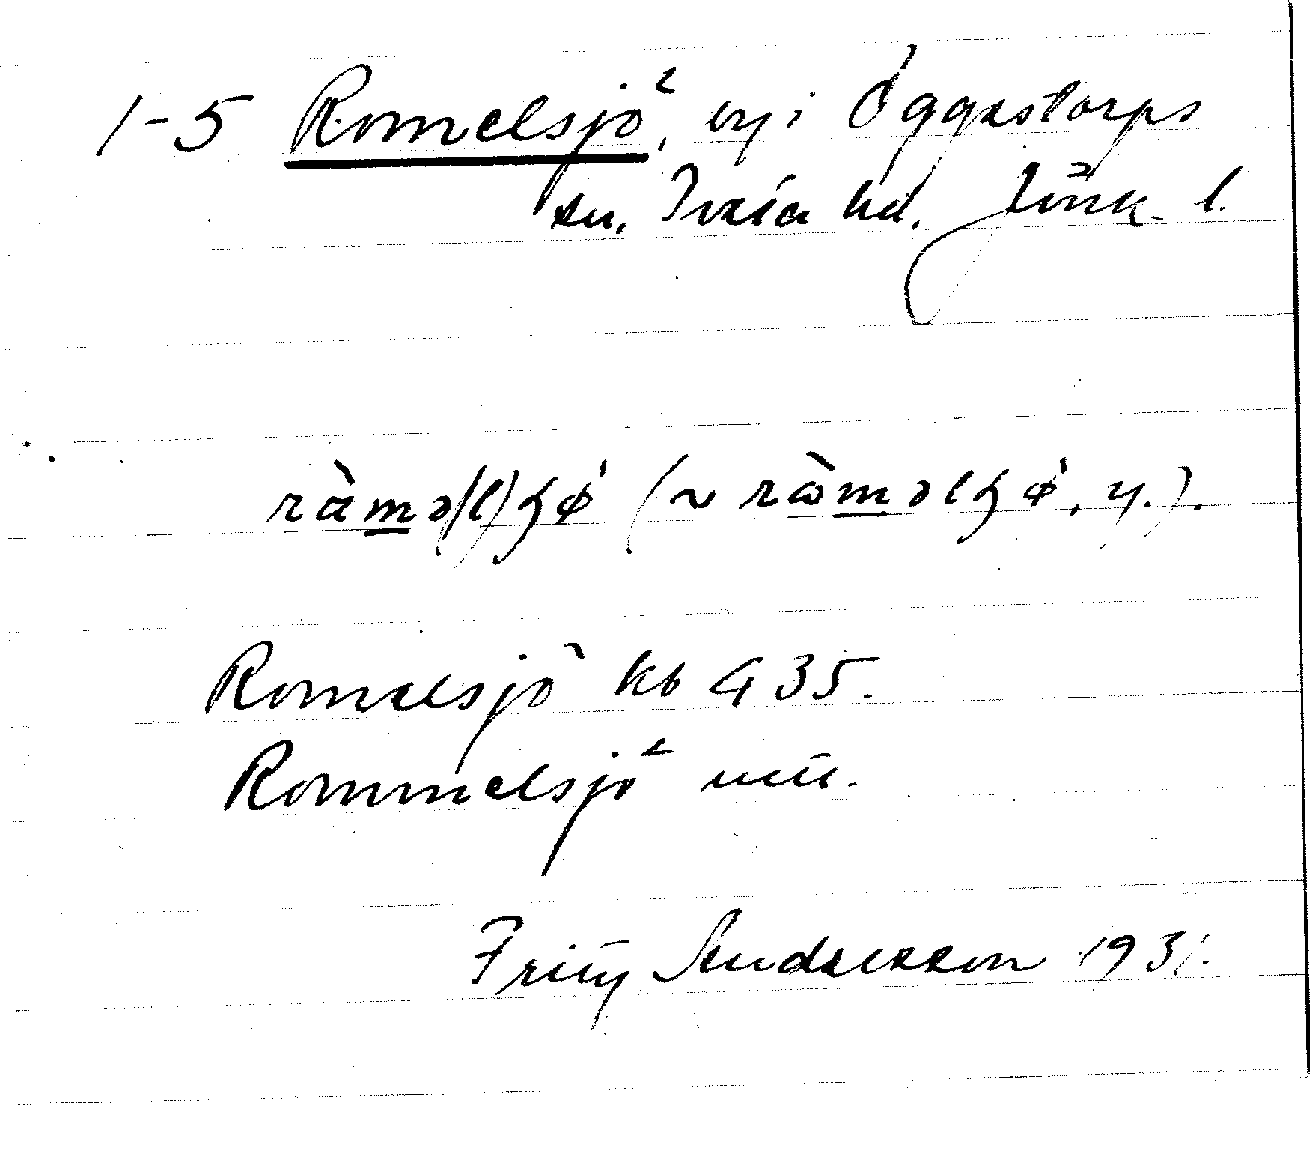 1-5 Romelsjö, by i Öggestorps
sn. Tveta hd. Jönk. l.
ràmə(l)ʂø̀ (~ rɷ̀məlʂø̀, y.).
Romelsjö kb G 35.
Rommelsjö
Fritz Andersson 1931.